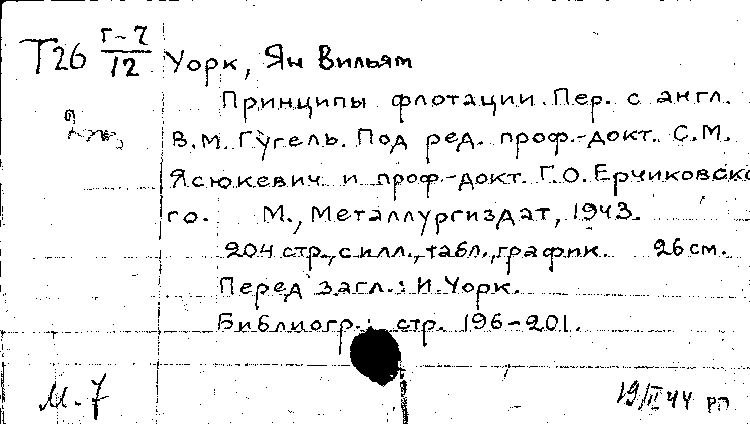 Т26 Г-7/12 Уорк, Ян Вильям
Принципы флотации. Пер. с англ.
2 экз.
В.М. Гугель. Под ред. проф.-докт. С.М.
Ясюкевич и проф.-докт. Г.О. Ерчиковско
го. М., Металлургиздат, 1943.
204 стр., с илл., табл., график. 26 см.
Перед загл.: И. Уорк.
Библиогр.: стр. 196-201.
М-7 19/II 44 РП